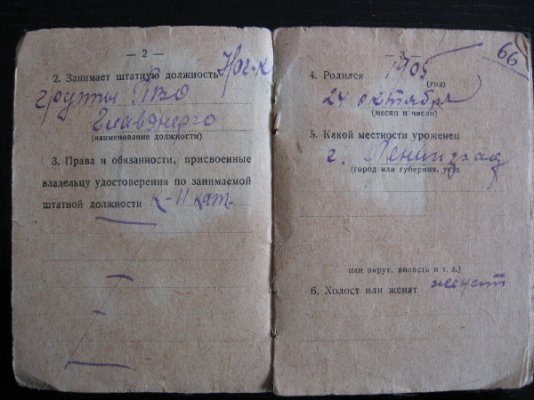 — 2 —
2. Занимает штатную должность Нач-к
группы ПВО
Главэнерго
(наименование должности)
3. Права и обязанности, присвоенные
владельцу удостоверения по занимаемой
штатной должности к-II кат.
— 3 —
66
4. Родился 1905
(год)
24 октября
(месяц и число)
5. Какой местности уроженец
г. Ленинград
(город или губерния, уезд
или округ, волость и т. д.)
6. Холост или женат женат